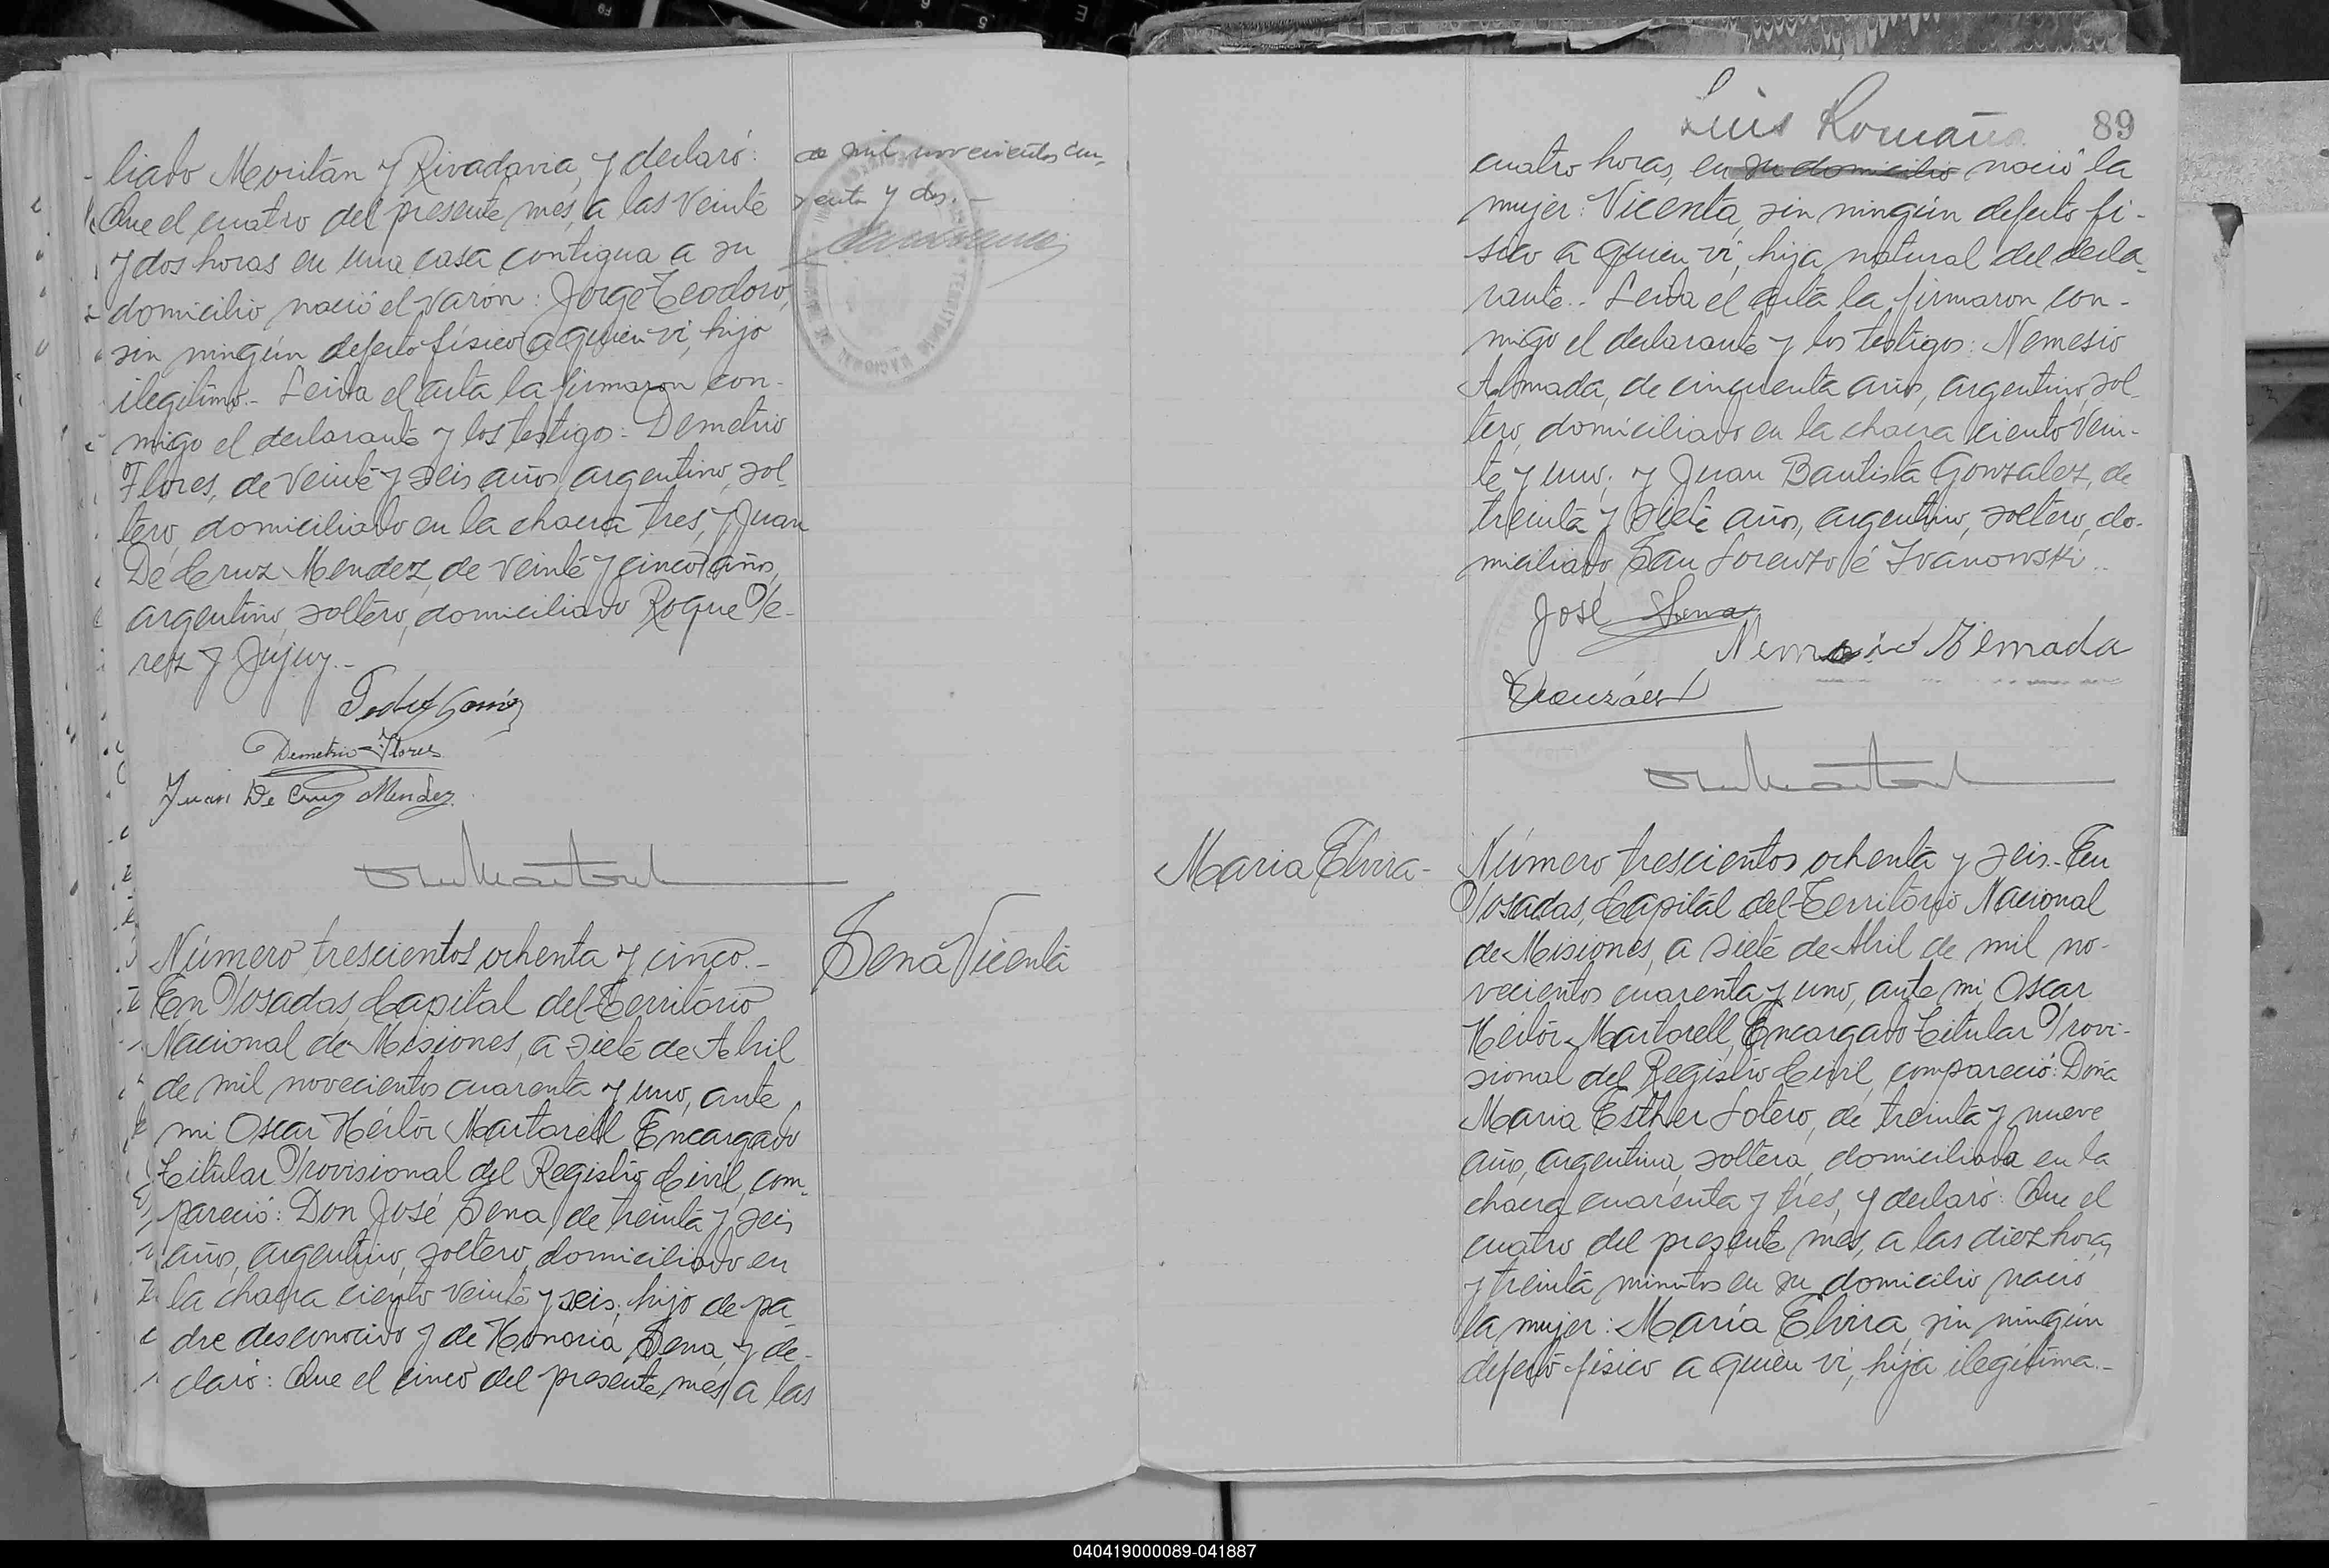 liado Moritán y Rivadavia, y declaró:
Que el cuatro del presente mes, a las veinte
y dos horas en una casa contigua a su
domicilio nació el varón: Jorge Teodoro,
sin ningún defecto físico a quien vi, hijo
ilegítimo.- Leida el acta la firmaron con-
migo el declarante y los testigos: Demetrio
Flores, de veinte y seis años, argentino, sol-
tero, domiciliado en la chacra tres, y Juan
De Cruz Mendez, de veinte y cinco años,
argentino, soltero, domiciliado Roque Pe-
rez y Jujuy.-
Demetrio Flores
Juan De Cruz Mendez
de mil novecientos cin-
cuenta y dos.-
Número trescientos ochenta y cinco.-
En Posadas, Capital del Territorio
Nacional de Misiones, a siete de Abril
de mil novecientos cuarenta y uno, ante
mi Oscar Héctor Martorell, Encargado
Titular Provisional del Registro Civil, com-
pareció: Don José Sena, de treinta y seis
años, argentino, soltero, domiciliado en
la chacra ciento veinte y seis, hijo de pa-
dre desconocido y de Honoria Sena, y de-
claró: Que el cinco del presente mes, a las
Sena Vicenta
Luis Romaña
89
cuatro horas, en su domicilio nació la
mujer: Vicenta, sin ningún defecto fí-
sico a quien vi, hija natural del decla-
rante.- Leida el acta la firmaron con-
migo el declarante y los testigos: Nemesio
Almada, de cincuenta años, argentino, sol-
tero, domiciliado en la chacra ciento vein-
te y uno; y Juan Bautista Gonzalez, de
treinta y siete años, argentino, soltero, do-
miciliado San Lorenzo é Ivanowski.-
José Sena
Nemesio Almada
Maria Elvira-
Número trescientos ochenta y seis.- En
Posadas, Capital del Territorio Nacional
de Misiones, a siete de Abril de mil no-
vecientos cuarenta y uno, ante mi Oscar
Héctor Martorell, Encargado Titular Provi-
sional del Registro Civil, compareció: Doña
Maria Esther Sotero, de treinta y nueve
años, argentina, soltera, domiciliada en la
chacra cuarenta y tres, y declaró: Que el
cuatro del presente mes, a las diez horas
y treinta minutos en su domicilio nació
la mujer: María Elvira, sin ningún
defecto físico a quien vi, hija ilegítima.-
040419000089-041887